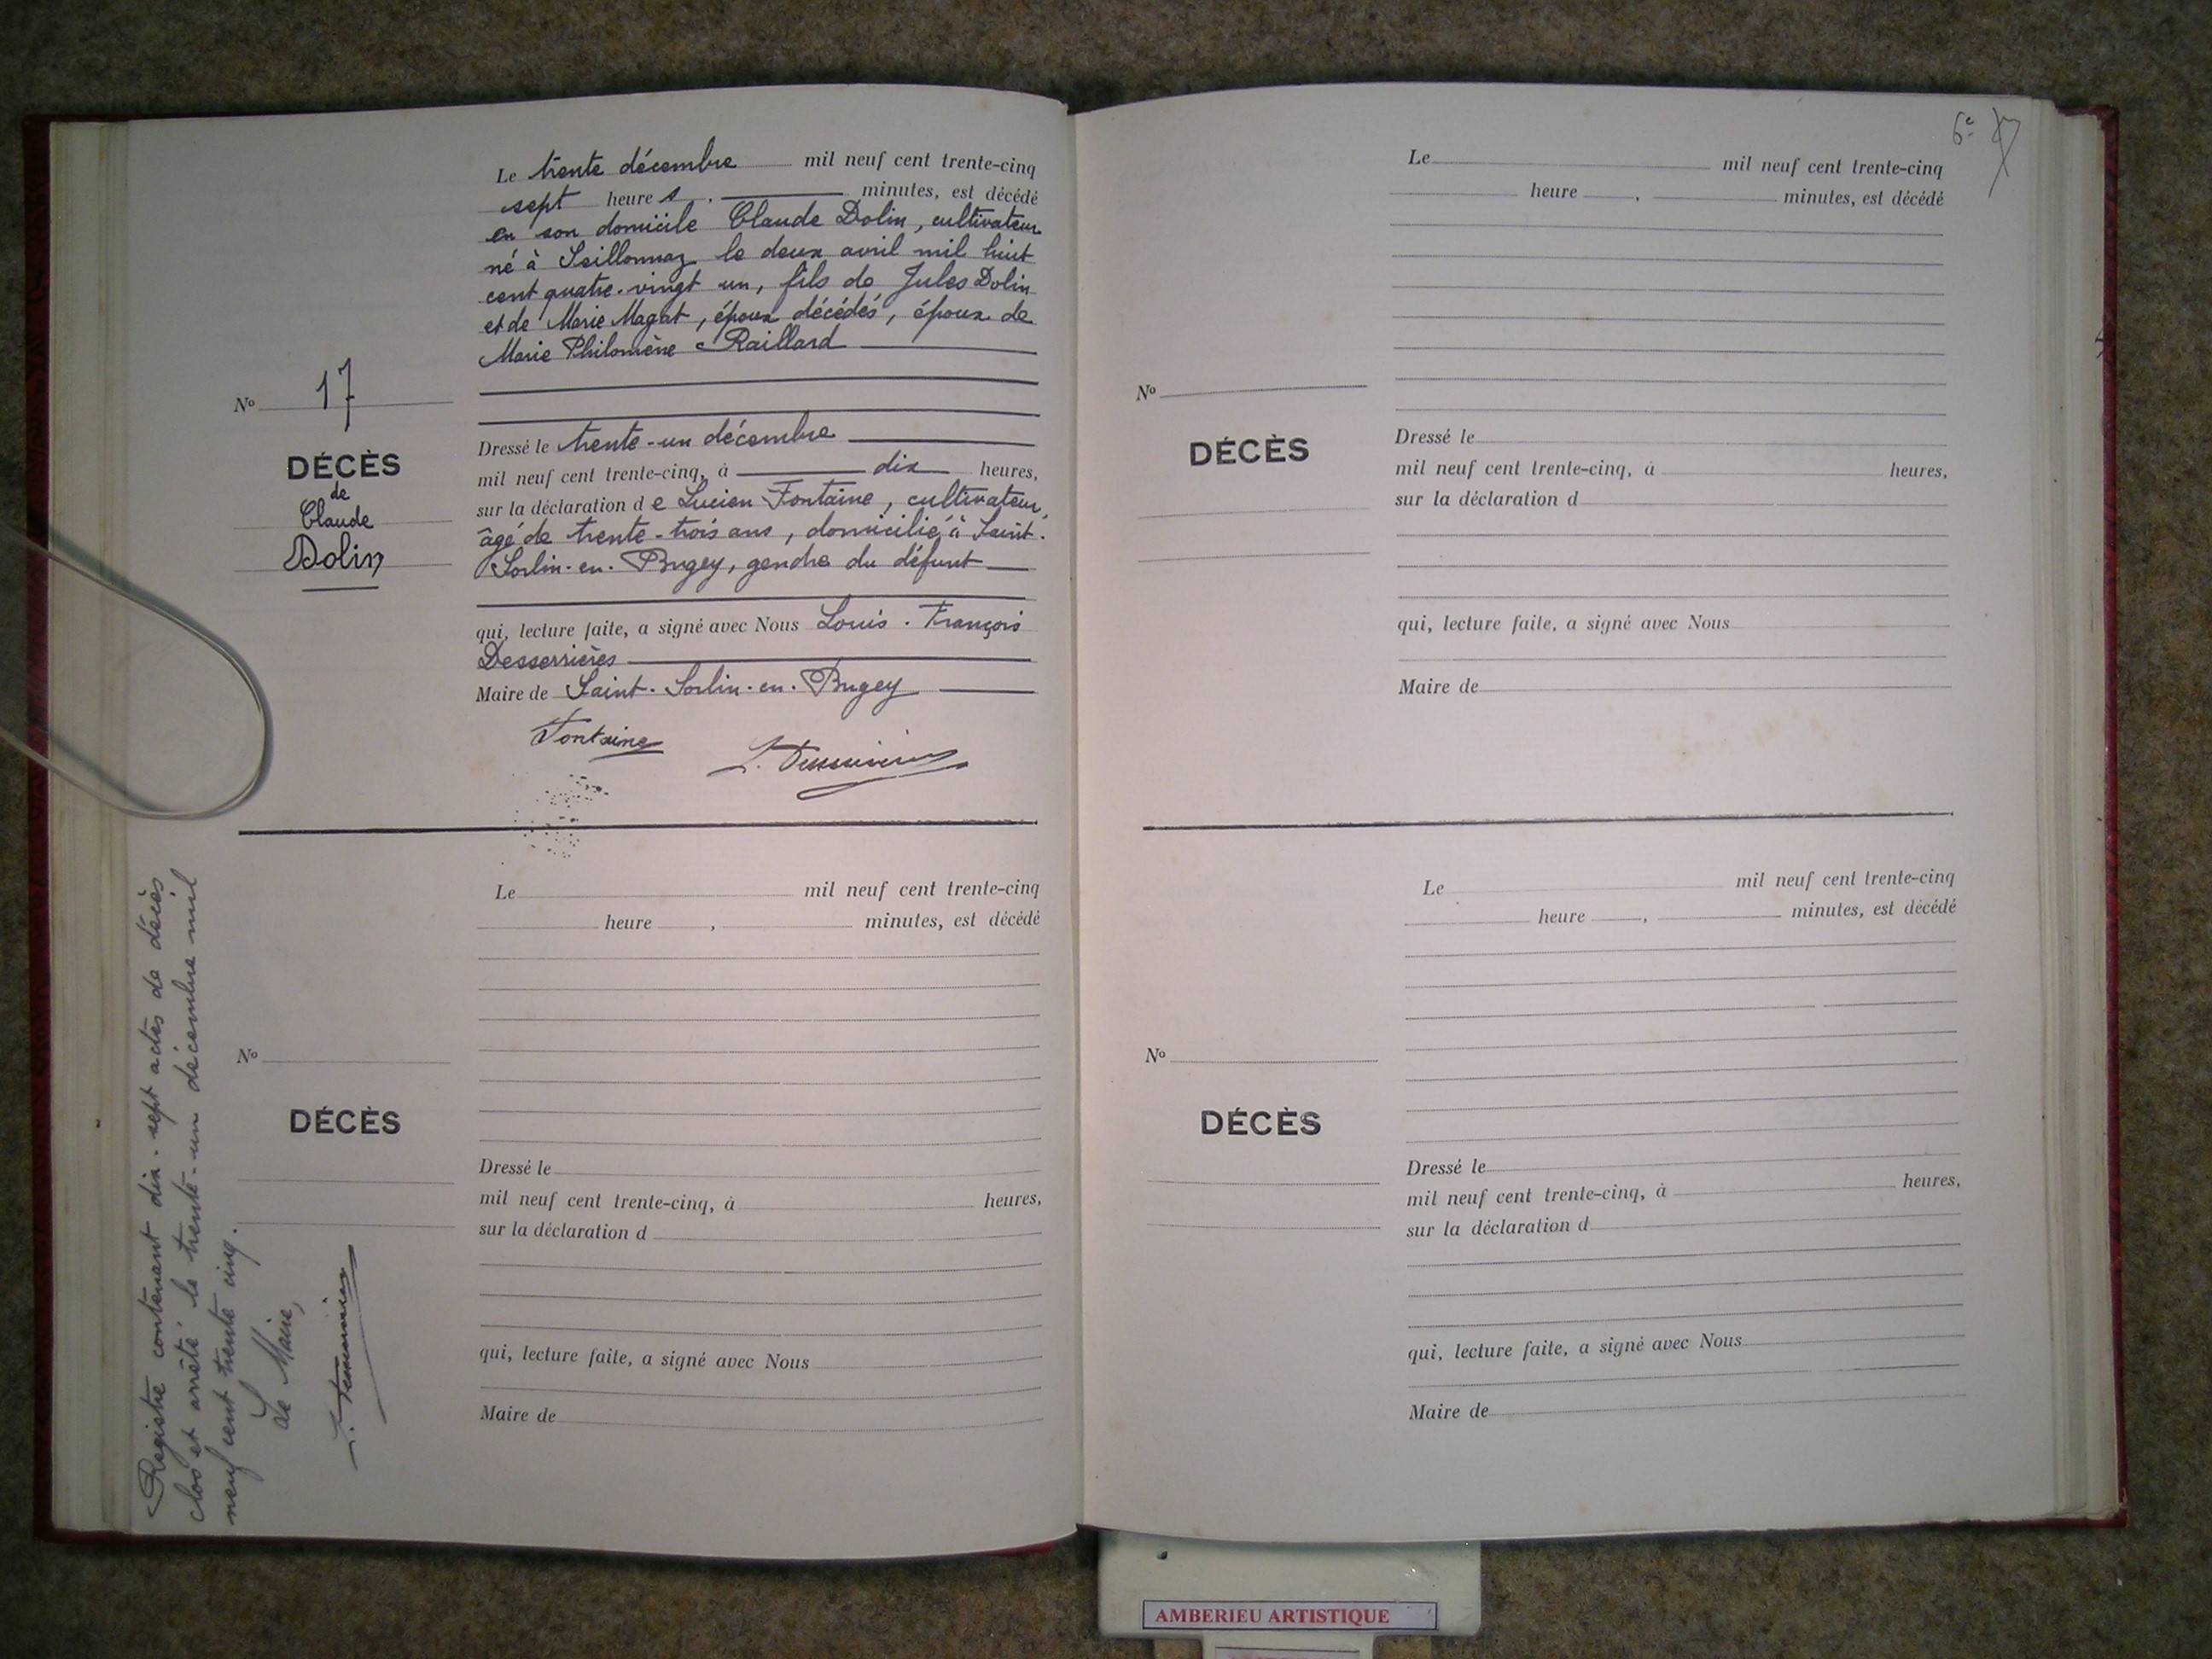 N° 17
DÉCÈS
de
Claude
Dolin
Le trente décembre mil neuf cent trente-cinq
sept heures, minutes, est décédé
en son domicile Claude Dolin, cultivateur
né à Seillonnaz le deux avril mil huit
cent quatre-vingt un, fils de Jules Dolin
et de Marie Magat, époux décédés, époux de
Marie Philomène Raillard
Dressé le trente-un décembre
mil neuf cent trente-cinq, à dix heures,
sur la déclaration de Lucien Fontaine, cultivateur,
âgé de trente-trois ans, domicilié à Saint-
Sorlin-en-Bugey, gendre du défunt
qui, lecture faite, a signé avec Nous Louis-François
Desserrières
Maire de Saint-Sorlin-en-Bugey
Fontaine
Le mil neuf cent trente-cinq
heure , minutes, est décédé
N°
DÉCÈS
Dressé le
mil neuf cent trente-cinq, à heures,
sur la déclaration d
qui, lecture faite, a signé avec Nous
Maire de
Registre contenant dix-sept actes de décès
clos et arrêté le trente-un décembre mil
neuf cent trente cinq.
Le Maire,
6e
Le mil neuf cent trente-cinq
heure , minutes, est décédé
N°
DÉCÈS
Dressé le
mil neuf cent trente-cinq, à heures,
sur la déclaration d
qui, lecture faite, a signé avec Nous
Maire de
Le mil neuf cent trente-cinq
heure , minutes, est décédé
N°
DÉCÈS
Dressé le
mil neuf cent trente-cinq, à heures,
sur la déclaration d
qui, lecture faite, a signé avec Nous
Maire de
AMBERIEU ARTISTIQUE